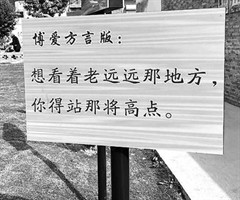 博爱方言版：
想看着老远远那地方，
你得站那将高点。